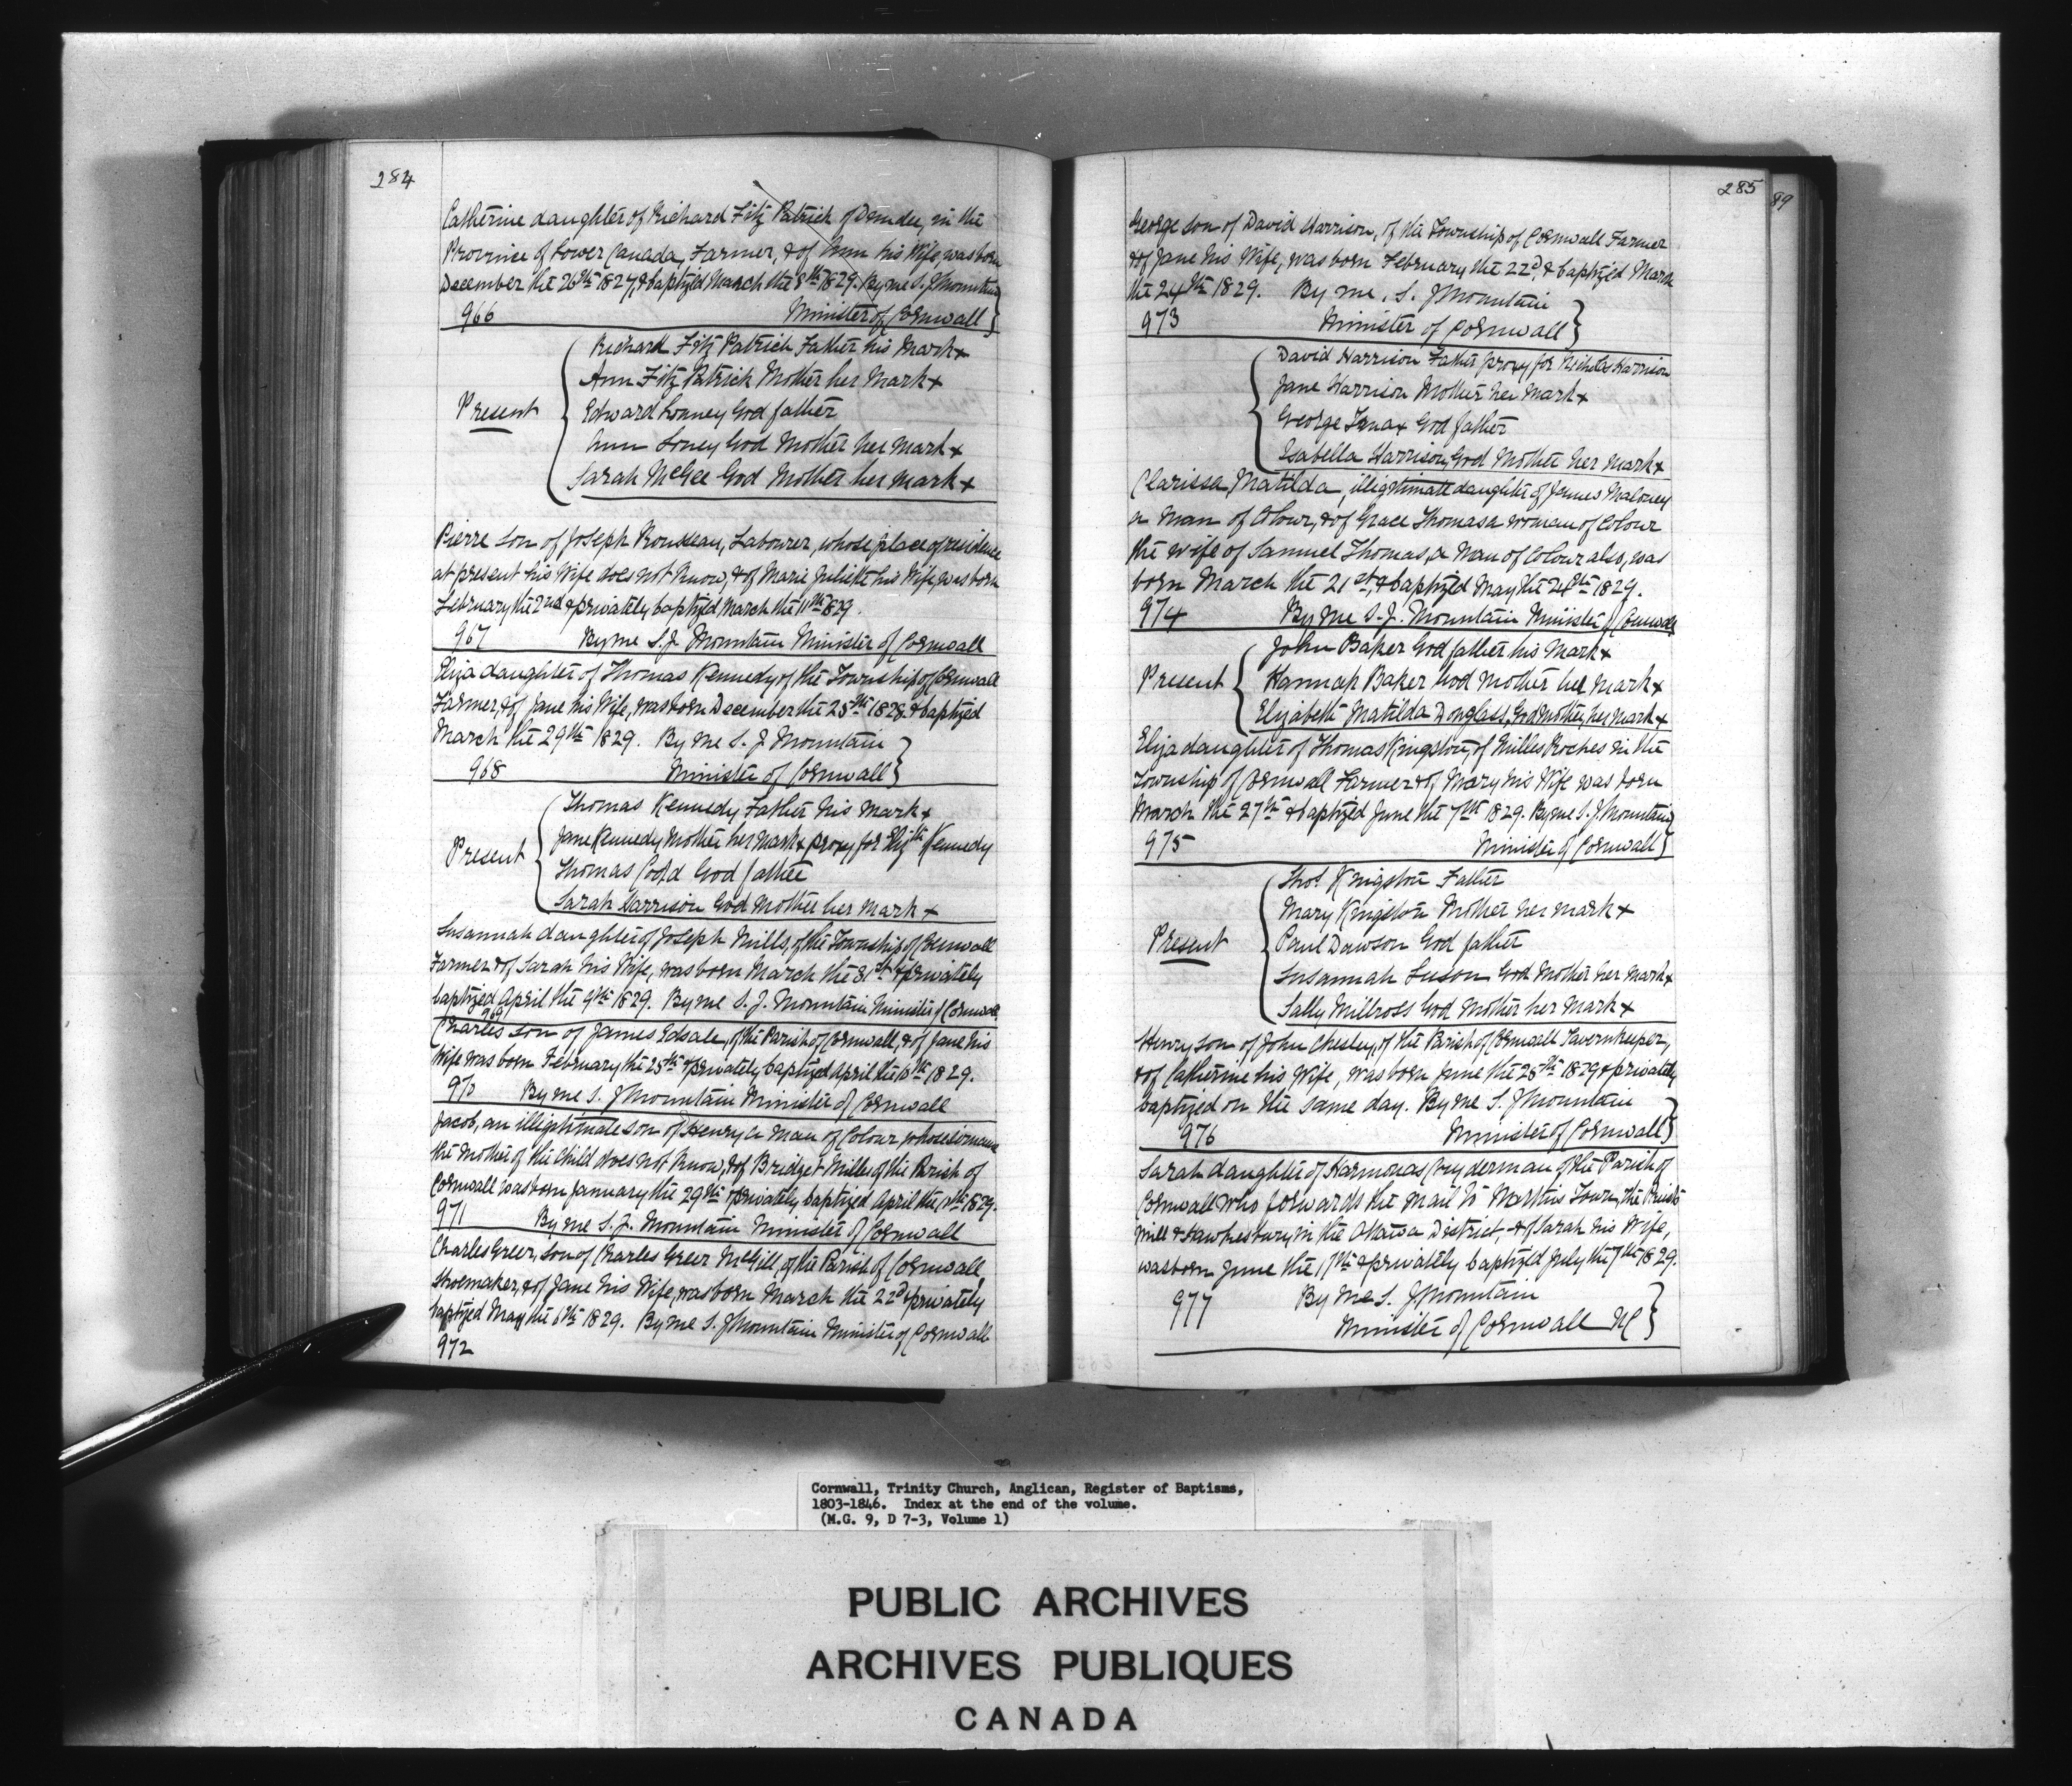 284
Catherine daughter of Richard Fitz Patrick of Dundee, in the
Province of Lower Canada, Farmer, & of Ann his Wife, was born
December the 26th 1827, & baptized March the 8th 1829. By me S. J Mountain
966 Minister of Cornwall
Richard Fitz Patrick Father his Mark x
Ann Fitz Patrick Mother her Mark x
Present
Edward Lonney God father
Ann Loney God Mother her mark x
Sarah McGee God Mother her mark x
Pierre son of Joseph Rousseau, Labourer, whose place of residence
at present his Wife does not know, & of Marie Juliette his Wife, was born
February the 2nd & privately baptized March the 11th 1829.
967 By me S. J. Mountain Minister of Cornwall
Eliza daughter of Thomas Kennedy of the Township of Cornwall
Farmer, & of Jane his Wife, was born December the 25th 1828 & baptized
March the 29th 1829. By me S. J Mountain
968 Minister of Cornwall
Thomas Kennedy Father his mark x
Jane Kennedy Mother her mark x proxy for Elizth Kennedy
Present
Thomas God father
Sarah Harrison God Mother her mark x
Susannah daughter of Joseph Mills, of the Township of Cornwall
Farmer & of Sarah his Wife, was born March the 31st & privately
baptized April the 9th 1829. By me S. J. Mountain Minister of Cornwall
969
Charles son of James Edsale, of the Parish of Cornwall, & of Jane his
Wife was born February the 25th & privately baptized April the 1829.
970 By me S. J Mountain Minister of Cornwall
Jacob, an illegitimate son of Henry a man of Colour whose surname
the mother of the child does not know, & of Bridget Mills of the Parish of
Cornwall was born January the 29th & privately baptized April the 1829.
971 By me S. J. Mountain Minister of Cornwall
Charles Greer, son of Charles Greer McGill of the Parish of Cornwall,
Shoemaker, & of Jane his Wife, was born March the 22d & privately
baptized May the 6th 1829. By me S. J Mountain Minister of Cornwall
972
285
89
George son of David Harrison, of the Township of Cornwall Farmer
& of Jane his Wife, was born February the 22d, & baptized March
the 24th 1829. By me, S. J Mountain
973 Minister of Cornwall
David Harrison Father proxy for Nicholas Harrison
Jane Harrison Mother her mark x
George God father
Isabella Harrison, God Mother her mark x
Clarissa Matilda, illegitimate daughter of James Maloney
a Man of Colour, & of Grace Thomas a woman of Colour
the wife of Samuel Thomas, a Man of Colour also, was
born March the 21st, & baptized May the 24th 1829.
974 By me S. J. Mountain Minister of Cornwall
John Baker God father his Mark x
Present
Hannah Baker God mother her mark x
Elizabeth Matilda Donglass, God Mother, her mark x
Eliza daughter of Thomas Kingston, of Milles Roches in the
Township of Cornwall Farmer & of Mary his Wife was born
March the 27th & baptized June the 7th 1829. By me S. J. Mountain
975 Minister of Cornwall
Thos. Kingston Father
Mary Kingston Mother her mark x
Present
Paul Dawson God father
Susannah Luson God Mother her mark x
Sally Millross God Mother her mark x
Henry son of John Chesley, of the Parish of Cornwall Tavernkeeper,
& of Catherine his Wife, was born June the 28th 1829 & privately
baptized on the same day. By me S. J Mountain
976 Minister of Cornwall
Sarah daughter of Harmonas Cryderman of the Parish of
Cornwall who forwards the Mail to Town, the
Mill & Hawkesbury, in the Ottawa District, & of Sarah his Wife,
was born June the 17th & privately baptized July the 7th 1829.
977 By me S. J Mountain
Minister of Cornwall UC
Cornwall, Trinity Church, Anglican, Register of Baptisms,
1803-1846. Index at the end of the volume.
(M.G. 9, D 7-3, Volume 1)
PUBLIC ARCHIVES
ARCHIVES PUBLIQUES
CANADA